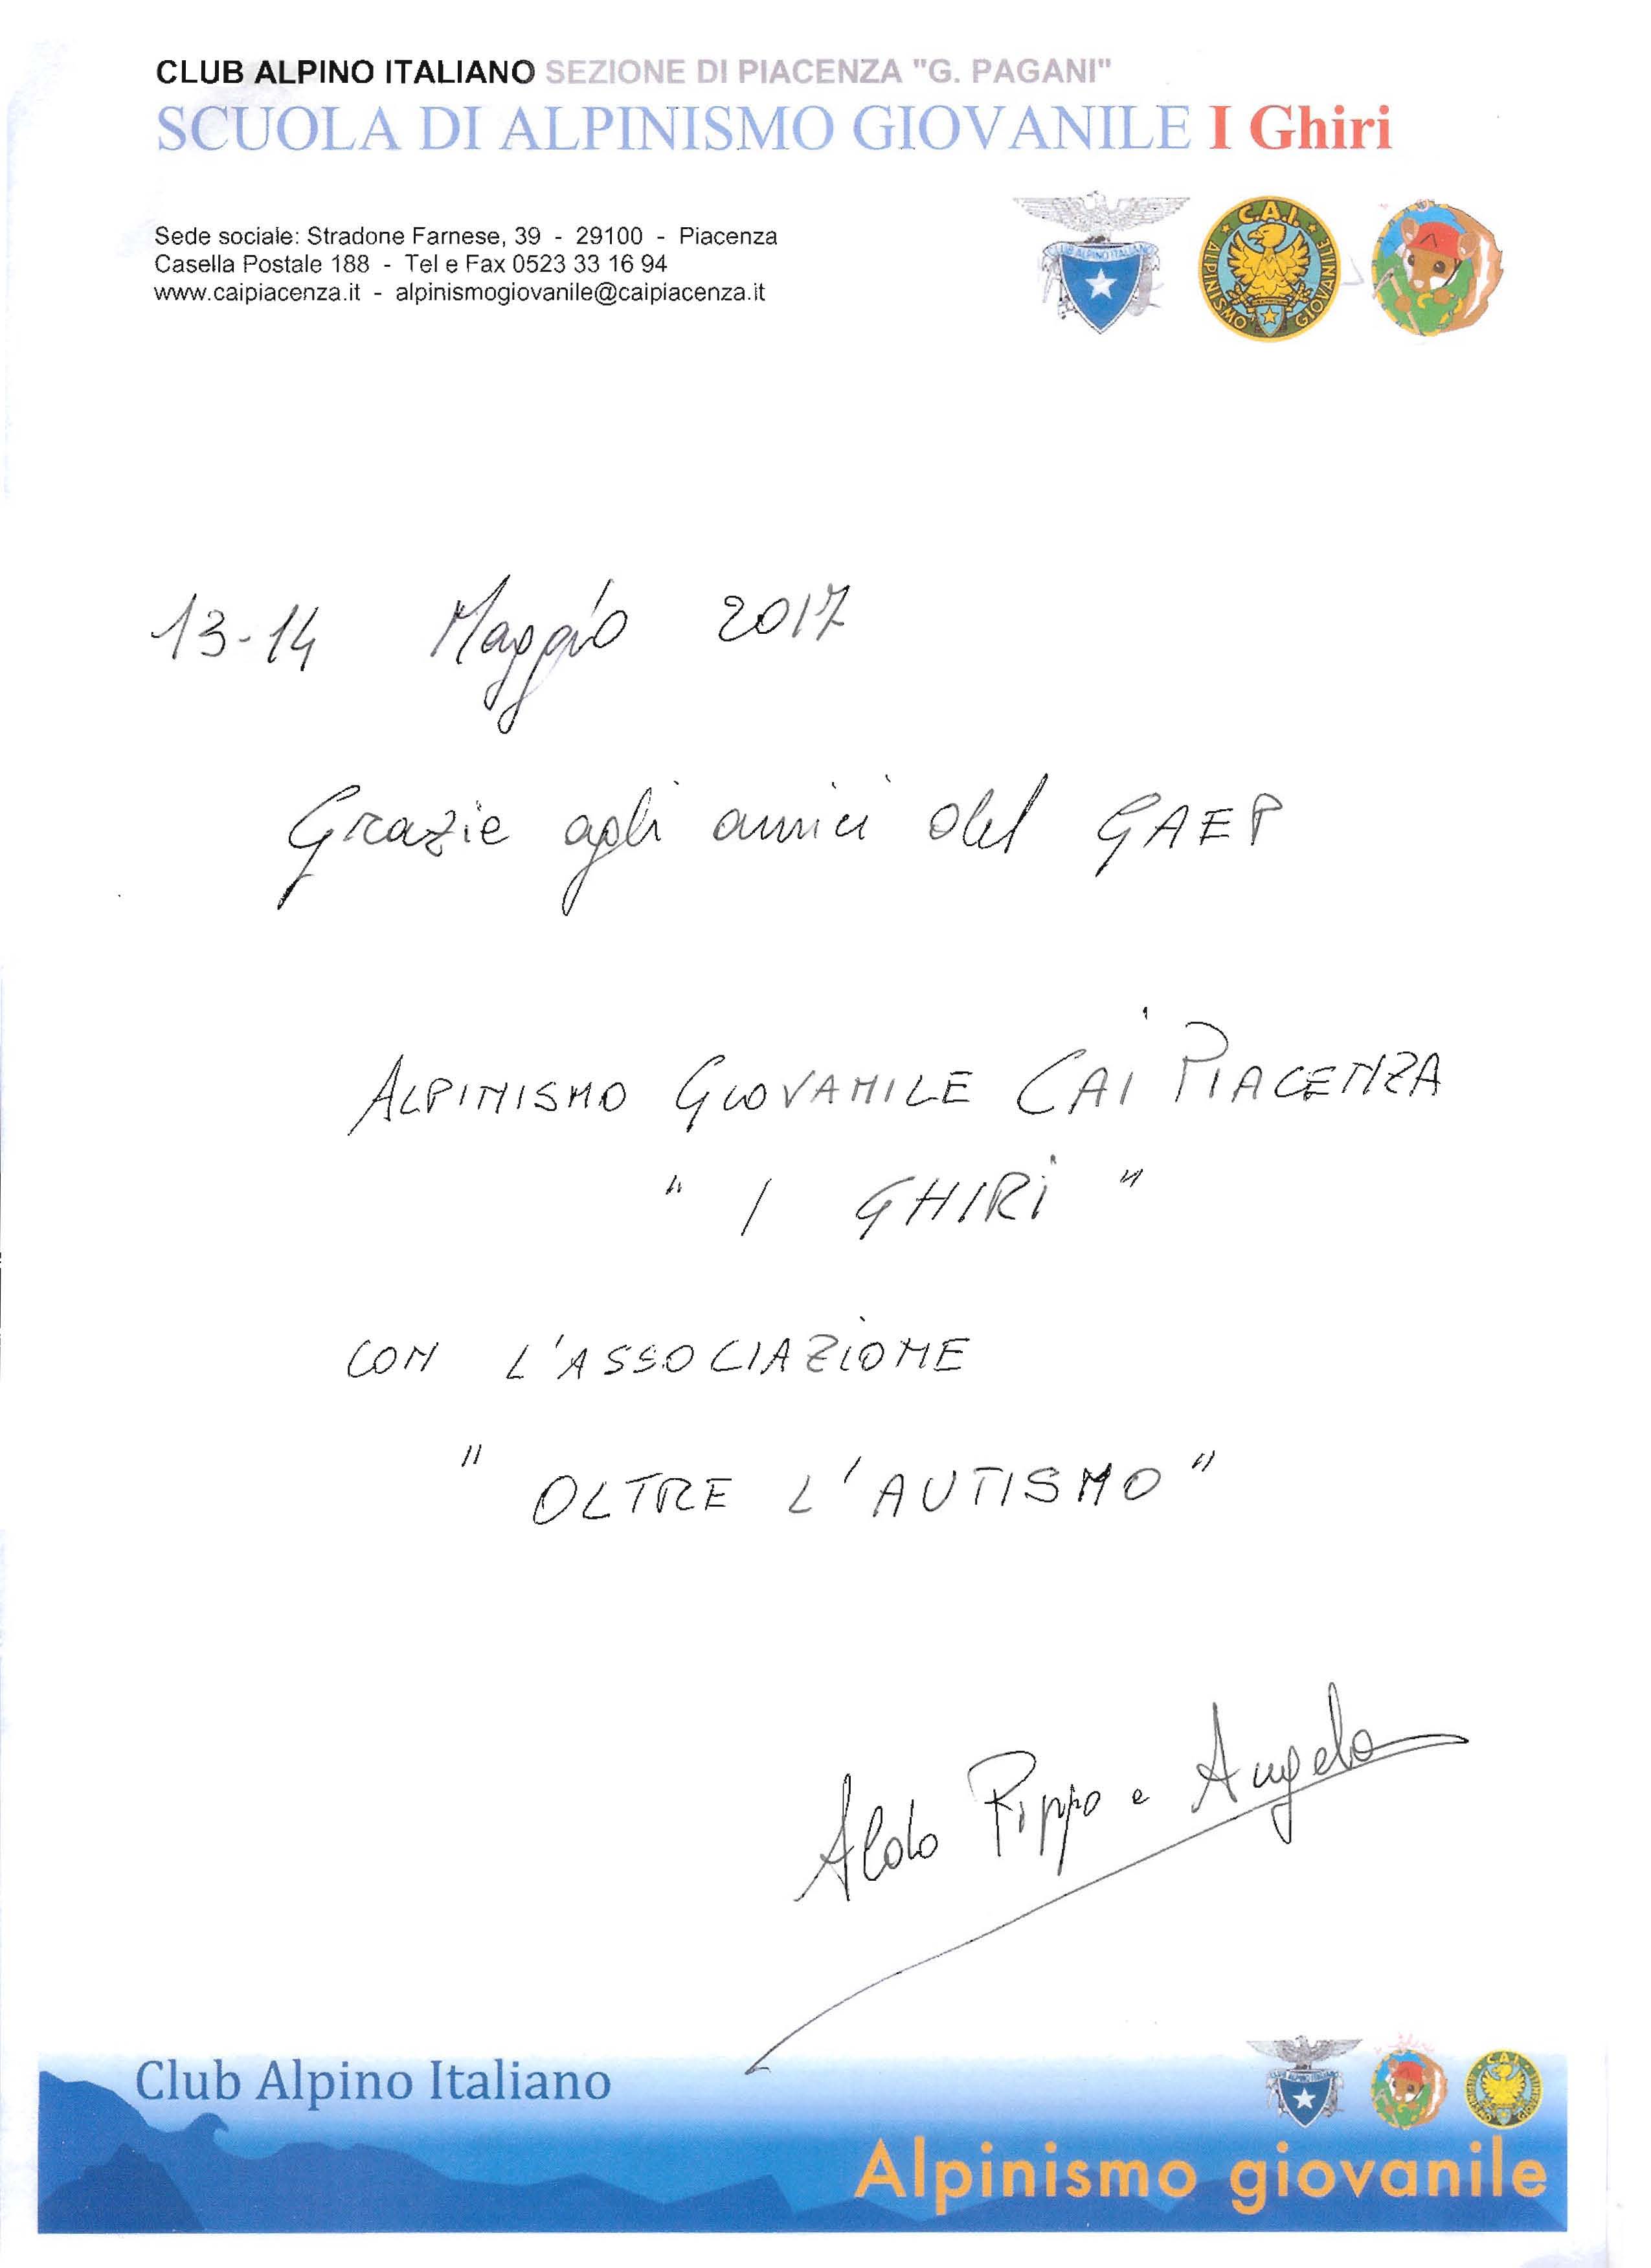 CLUB ALPINO ITALIANO SEZIONE DI PIACENZA "G. PAGANI"
SCUOLA DI ALPINISMO GIOVANILE I Ghiri
Sede sociale: Stradone Farnese, 39 - 29100 - Piacenza
Casella Postale 188 - Tel e Fax 0523 33 16 94
www.caipiacenza.it - alpinismogiovanile@caipiacenza.it
CLUB ALPINO ITALIANO
C.A.I.
ALPINISMO GIOVANILE
13-14 Maggio 2017
Grazie agli amici del GAEP
ALPINISMO GIOVANILE CAI PIACENZA
" I GHIRI "
CON L'ASSOCIAZIONE
" OLTRE L'AUTISMO "
Aldo Pippo e Angelo
Club Alpino Italiano
C.A.I.
Alpinismo giovanile